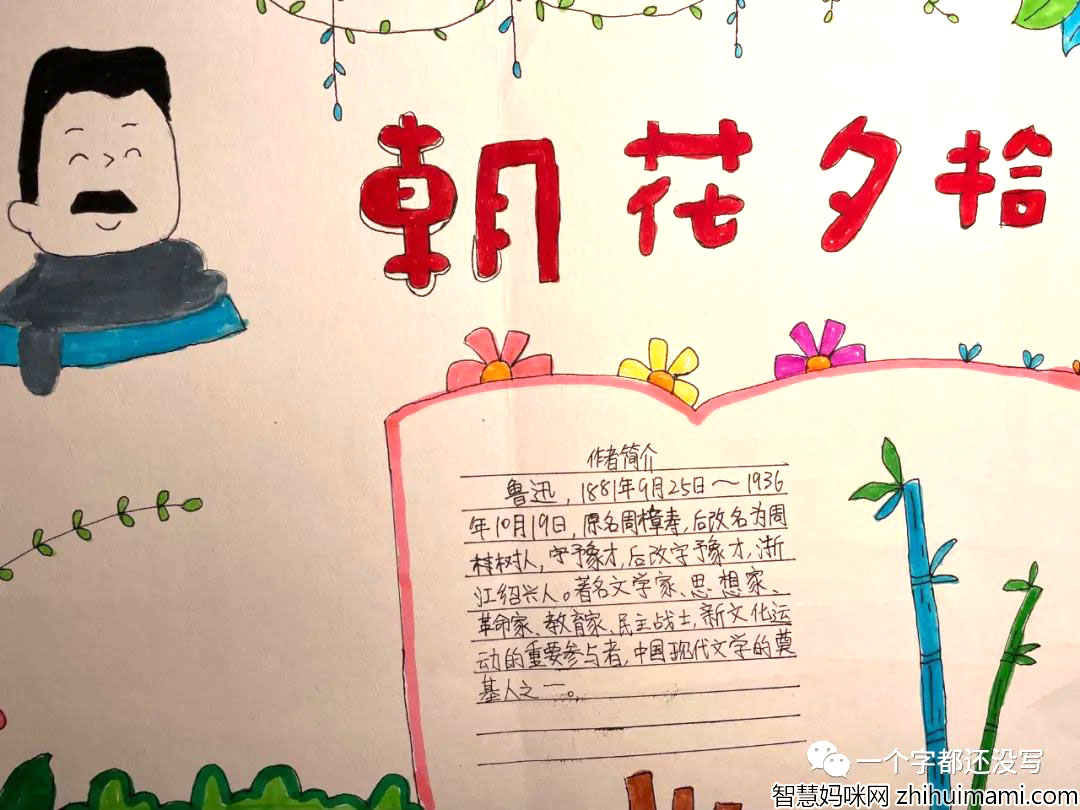 朝花夕拾
作者简介
鲁迅，1881年9月25日～1936
年10月19日，原名周樟寿，后改名为周
树人，字豫才，后改字豫才，浙
江绍兴人。著名文学家、思想家、
革命家、教育家、民主战士，新文化运
动的重要参与者，中国现代文学的奠
基人之一。
一个字都还没写
智慧妈咪网 zhihuimami.com